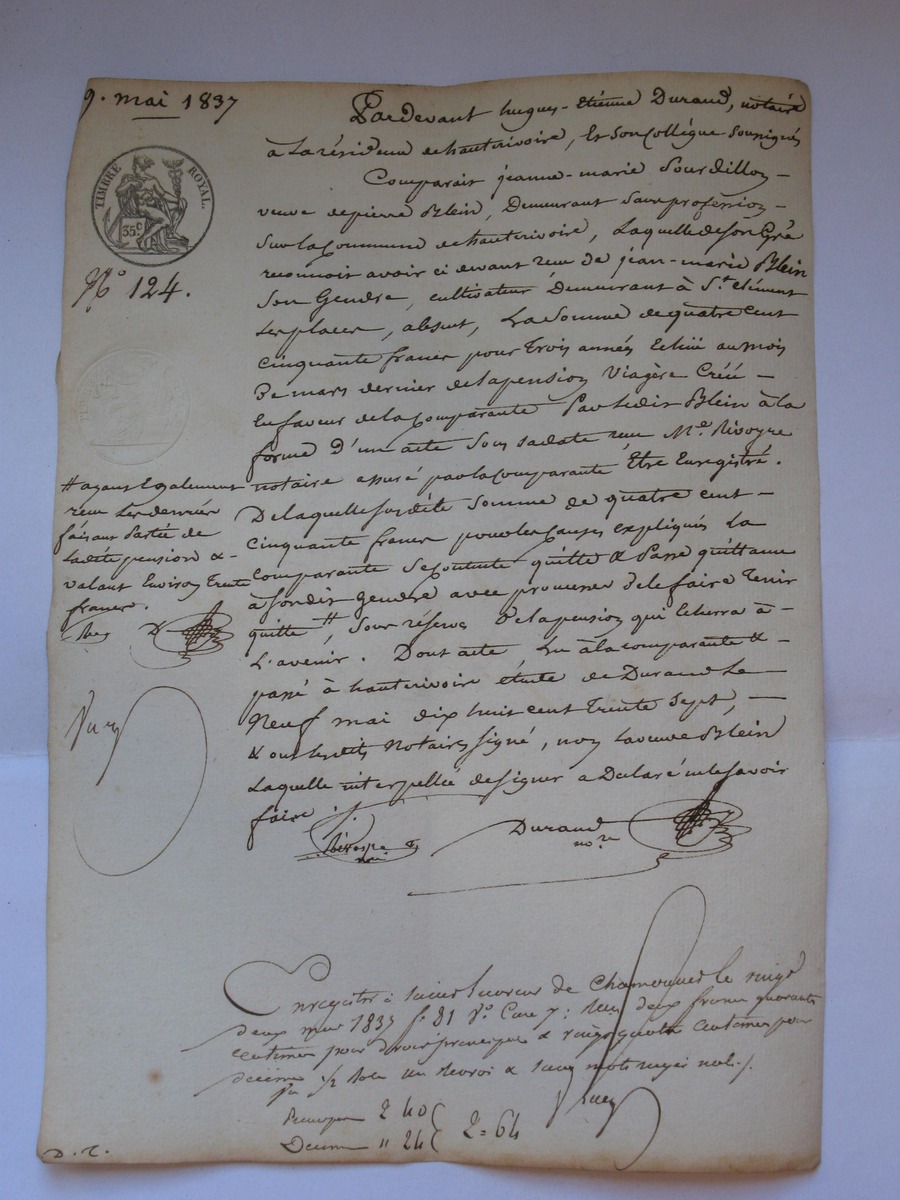 9. mai 1837
TIMBRE ROYAL.
35 C
N.° 124.
Pardevant hugues-Etienne Durand, notaire
à La résidence de hauterivoire, Et son Collègue soussignés
Comparait jeanne-marie Sourdillon
veuve de pierre Blein, Demeurant Sans profession
Sur la Commune de hauterivoire, Laquelle de Son Gré
reconnait avoir ci devant reçu de jean-marie Blein
Son Gendre, cultivateur Demeurant à St. clément
Les places, absent, La Somme de quatre Cent
Cinquante francs pour Trois années Echue au mois
De mars dernier de la pension Viagère Créée
En faveur de la Comparante Par Ledit Blein à la
forme D'un acte Sous sa date reçu Me. Rivoyre
notaire assuré par la Comparante Etre Enregistré.
De laquelle susdite Somme de quatre cent
Cinquante francs pour les Causes expliquées La
Comparante Se Contente quitte & Passe quittance
à Son dit Gendre avec promesse De le faire Tenir
quitte #, Sous réserve De la pension qui Echerra à
L'avenir. Dont acte Lu à la comparante &
passé à hauterivoire étude de Durand Le
Neuf mai dix huit cent Trente Sept,
& ont Lesdits Notaires signé, non La veuve Blein
Laquelle interpellée de signer a Déclaré ne le savoir
faire ./.
# ayant Egalement
reçu Les denrées
faisant Partie de
Ladite pension &
valant Environ Trente
francs.
D
Durand
no.re
Enregistré à Saint Laurent de Chamousset le vingt
deux mai 1837 f.° 81 V.° Case 7: Reçu deux francs quarante
centimes pour droit principal & vingt quatre centimes pour
décime ./.
un renvoi & sans mots rayés nuls ./.
Principal 2 40
Décime " 24
2=64
D. R.